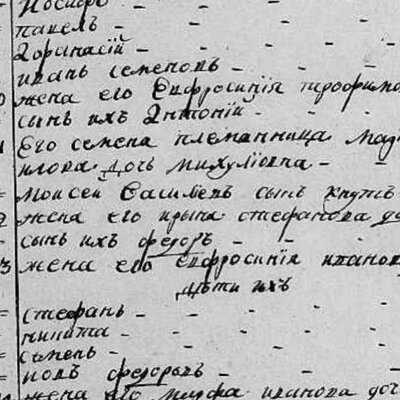 Иосифъ
павелъ
Афанасій
иванъ семеновъ
жена его Евфросинія трофимо
сынъ ихъ Антоній
Его семена племянница мар
дочь михуліевна
Моисей Василиевъ сынъ
жена его ирина стефанова до
сынъ ихъ федоръ
3 жена его Евфросинія иванов
дѣти ихъ
стефанъ
никита
семенъ
федоровъ
жена его марфа иванова доч